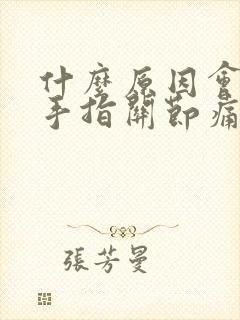 什麼原因會
手指關節痛
張芳曼